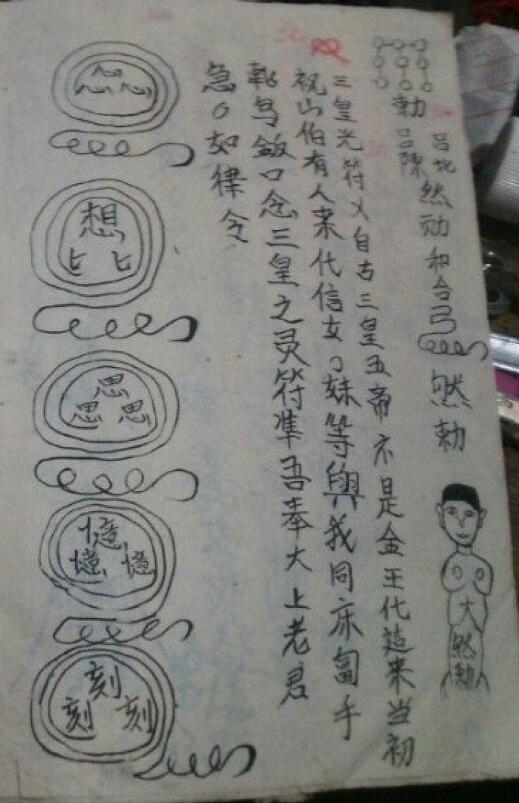 勅
吕陳
然勅和合弓
然勅
大
然勅
三皇光符乂自古三皇五帝不是金王代造来当初
祝山伯有人来代信女〇妹等與我同床旬手
鸟飯口念三皇之灵符準吾奉大上老君
急〇如律令
想
匕 匕
思
思 思
憶
憶 憶
刻
刻 刻